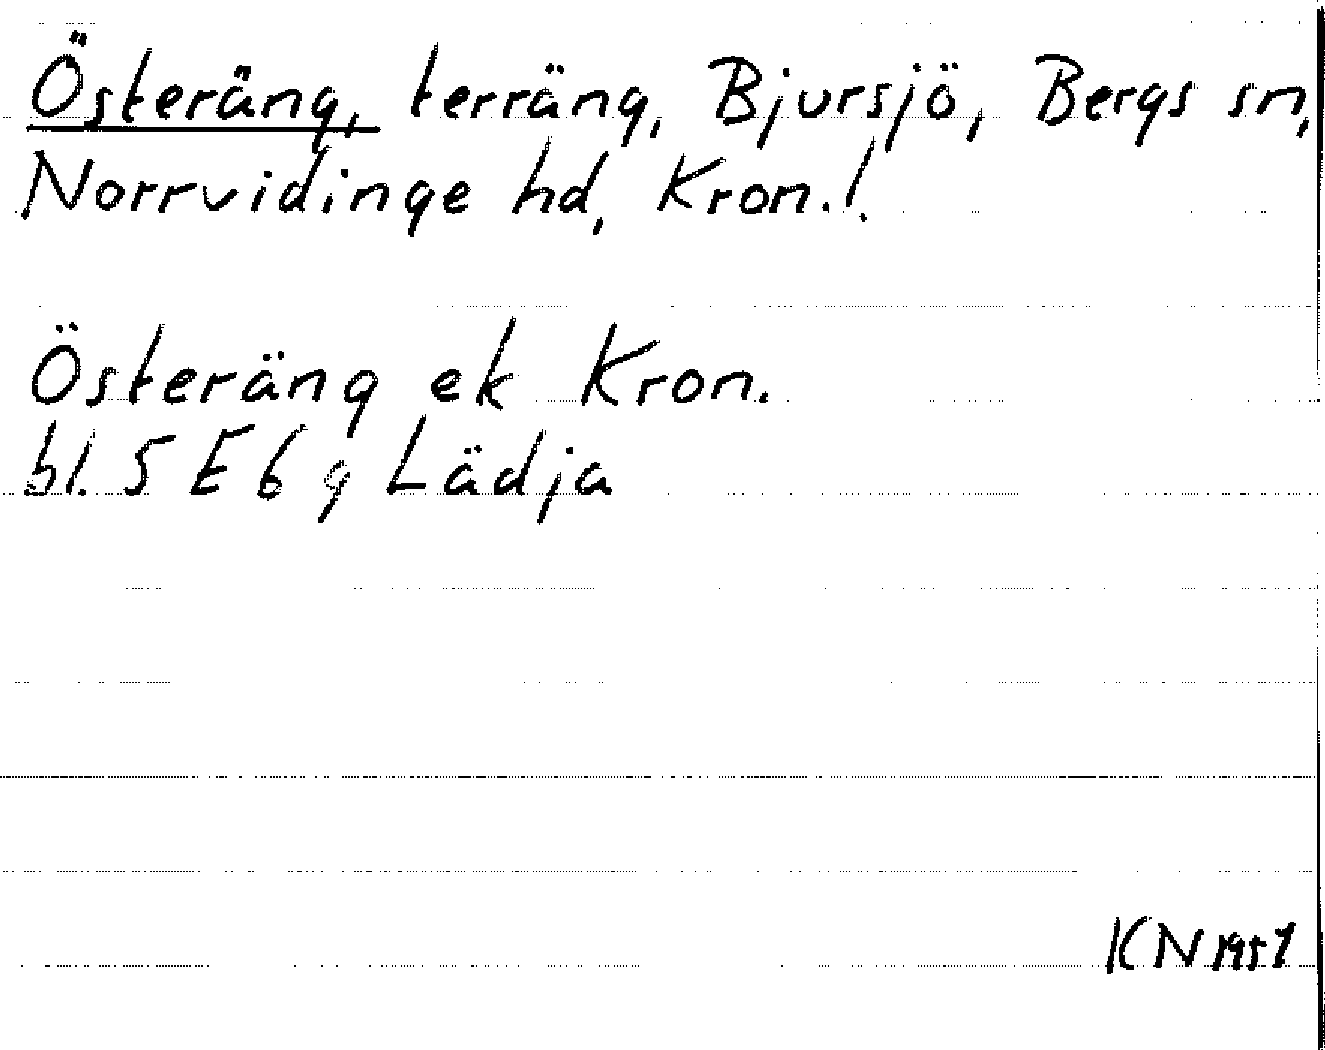 Österäng, terräng, Bjursjö, Bergs sn,
Norrvidinge hd, Kron. l.
Österäng ek Kron.
bl. 5 E 6 g Lädja
KN 1957